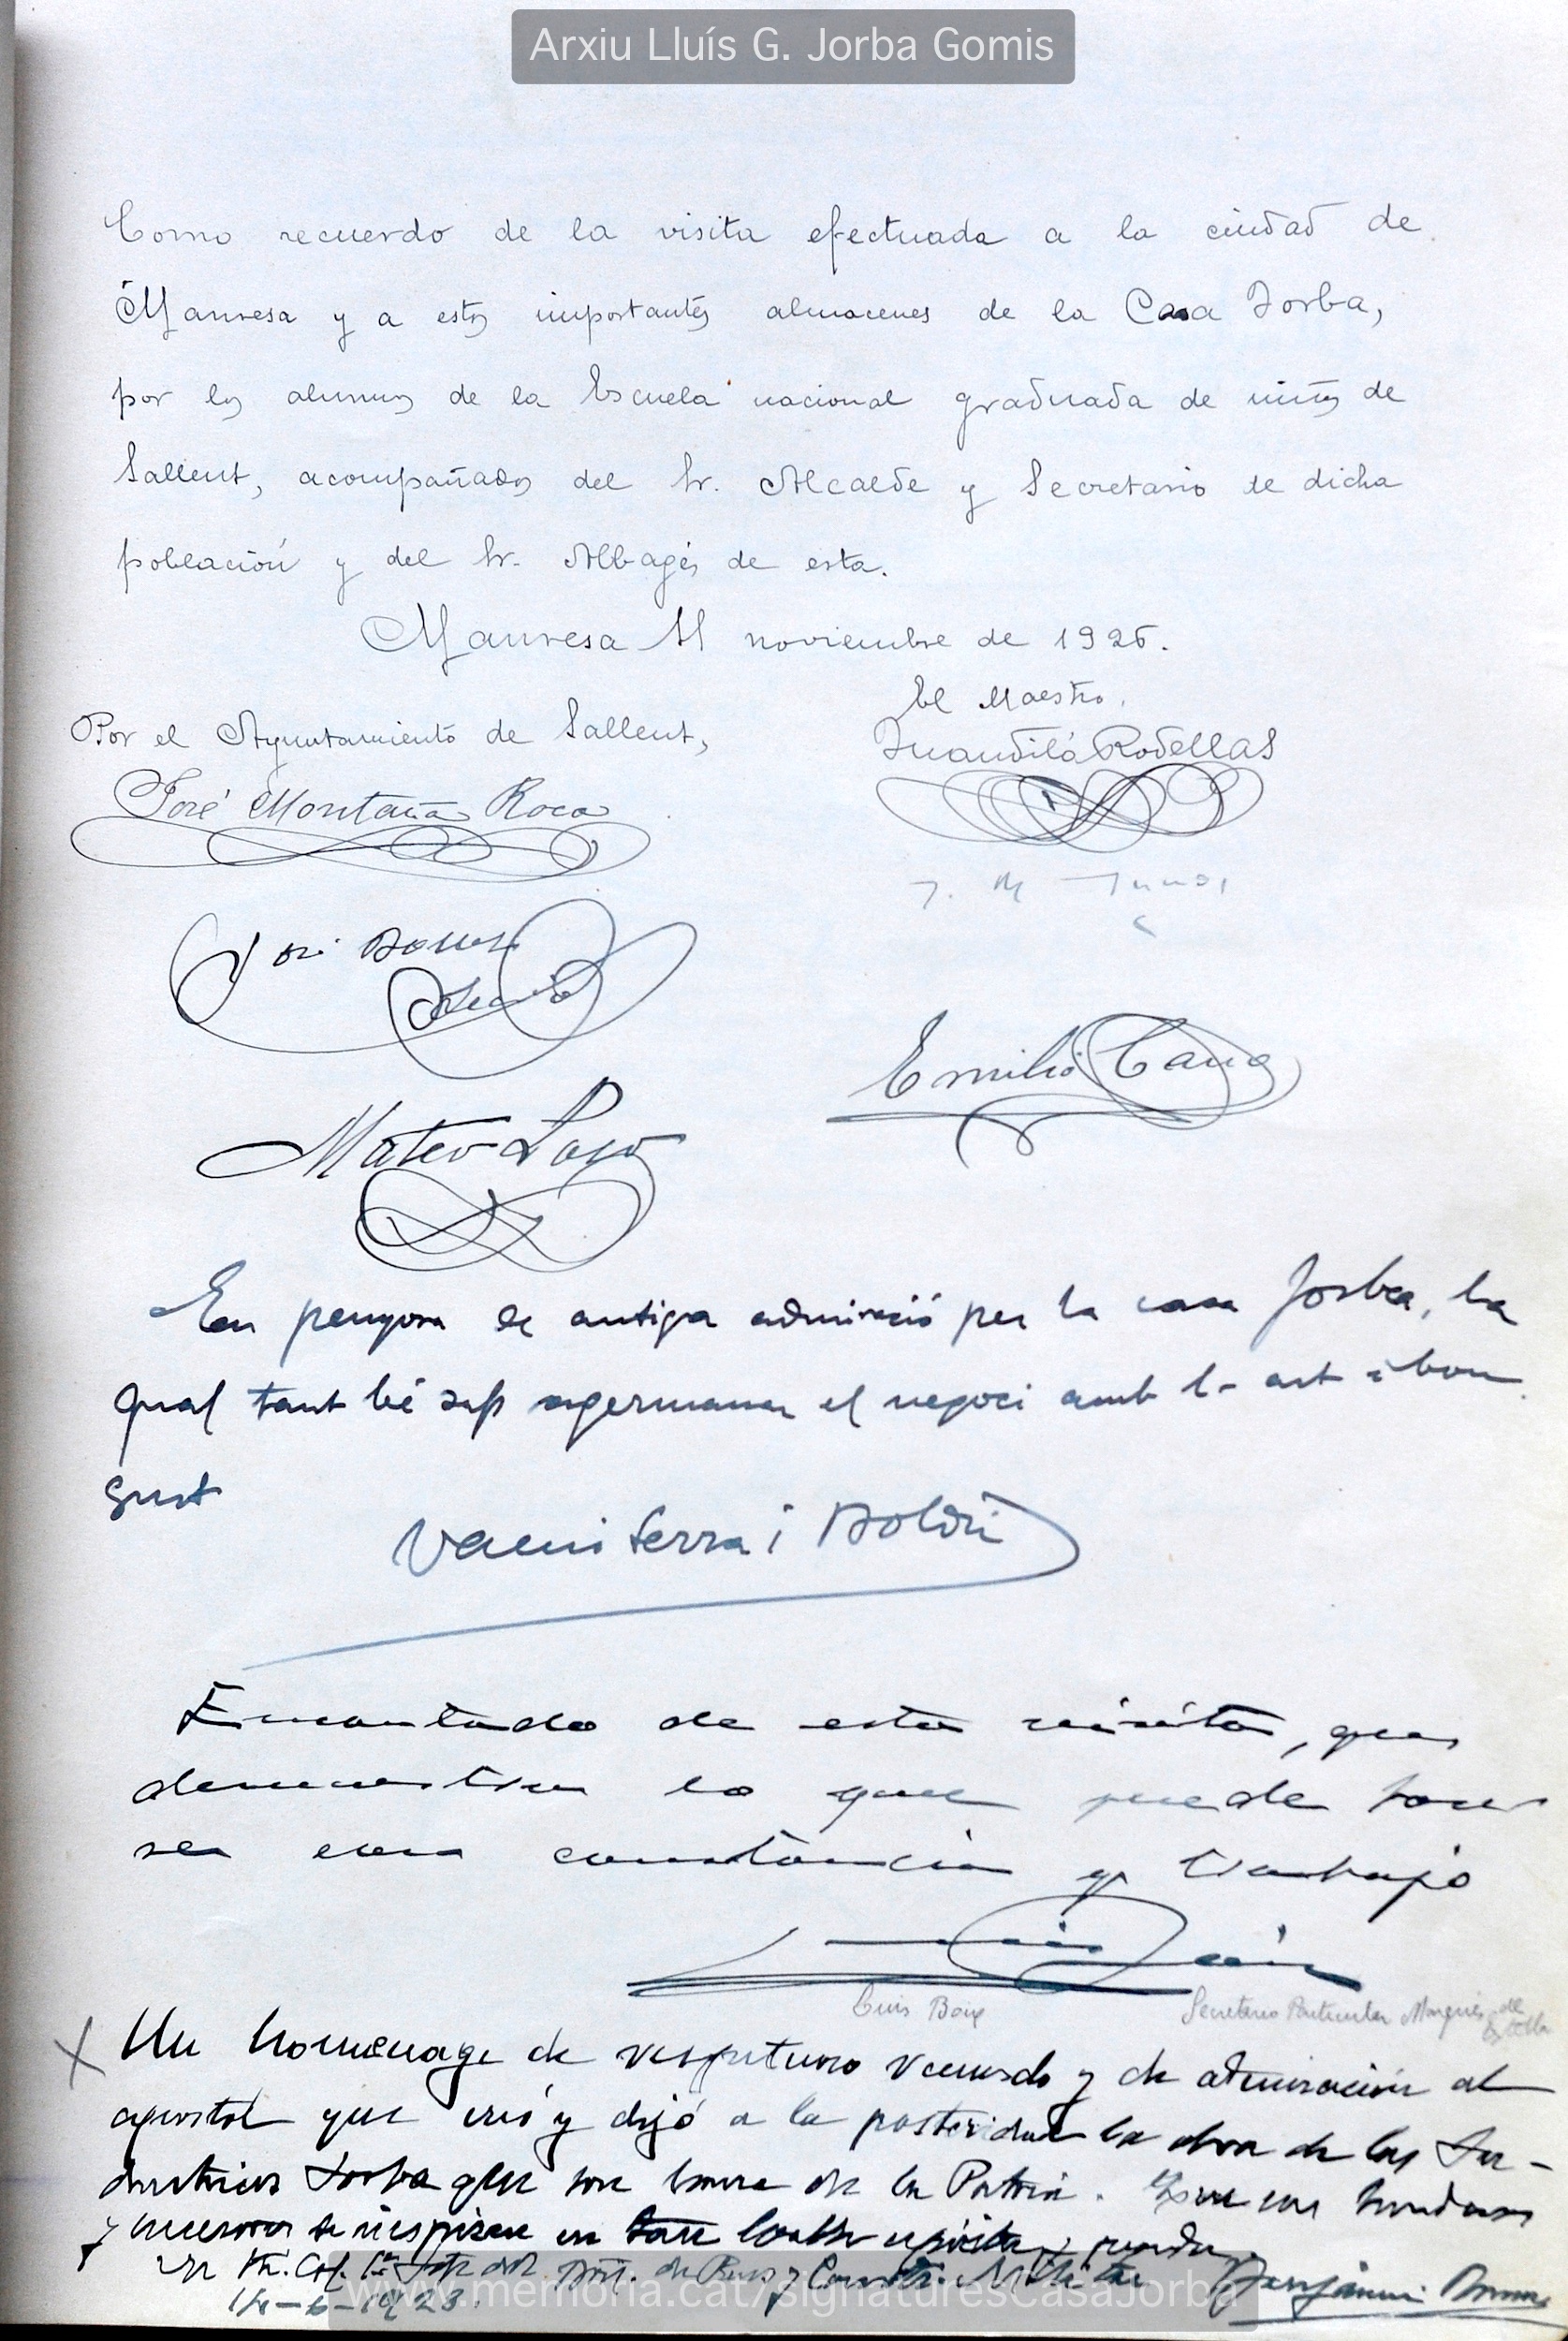 Arxiu Lluís G. Jorba Gomis
Como recuerdo de la visita efectuada a la ciudad de
Manresa y a estos importantes almacenes de la Casa Jorba,
por los alumnos de la Escuela nacional graduada de niños de
Sallent, acompañados del Sr. Alcalde y Secretario de dicha
población y del Sr. Albagés de esta.
Manresa 11 noviembre de 1926.
El Maestro,
Por el Ayuntamiento de Sallent,
Rodellas
José Montaña Roca
José
Emilio
Mateo
En penyora de antiga admiració per la casa Jorba, la
qual tant bé sap agermanar el negoci amb l'art i bon
gust
Valeri Serra i Boldú
Encantado de esta visita, que
demuestra lo que puede hacer
se con constancia y trabajo
Luis
Secretario Particular Marqués de
Estella
Un homenage de respetuoso recuerdo y de admiración al
apostol que creó y dejó a la posteridad la obra de las In-
dustrias Jorba que son honra de la Patria. Que sus
y se inspiren en
y Militar Benjamin
www.memoria.cat/signaturesCasaJorba